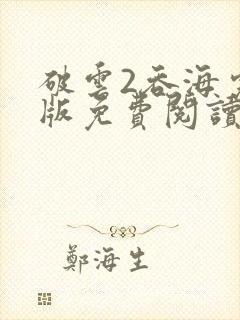 破雲2吞海
版免費閱讀
鄭海生